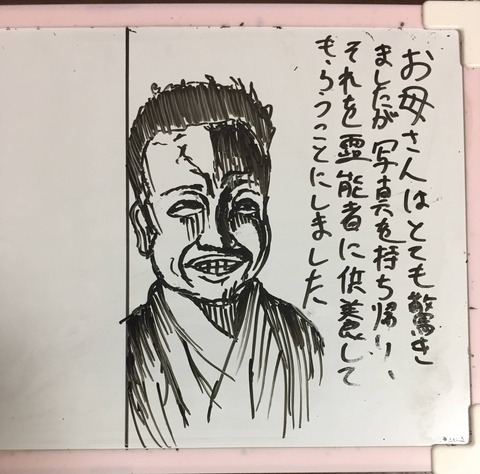 お母さんはとても驚き
ましたが写真を持ち帰り、
それを霊能者に供養して
もらうことにしました